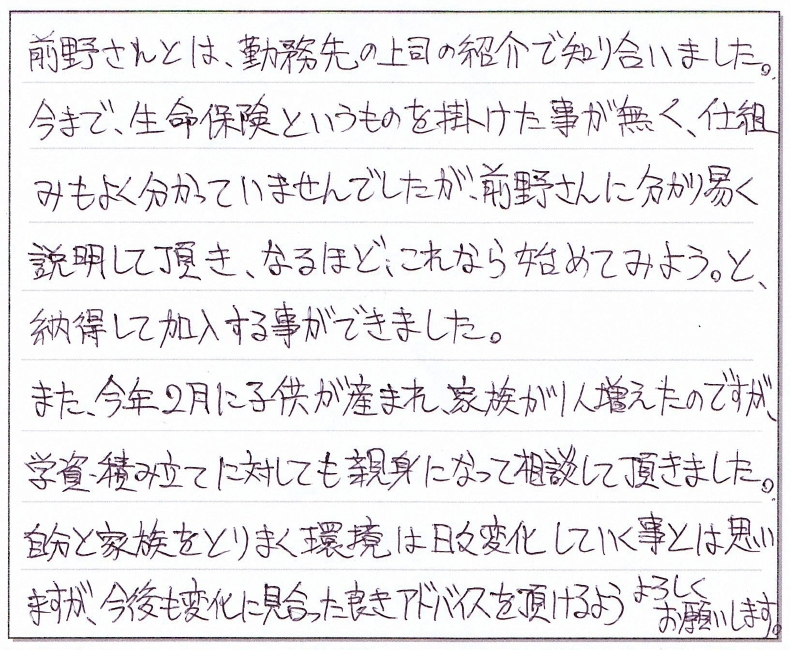 前野さんとは、勤務先の上司の紹介で知り合いました。
今まで、生命保険というものを掛けた事が無く、仕組
みもよく分かっていませんでしたが、前野さんに分かり易く
説明して頂き、なるほど、これなら始めてみよう。と、
納得して加入する事ができました。
また、今年2月に子供が産まれ、家族が1人増えたのですが、
学資・積み立てに対しても親身になって相談して頂きました。
自分と家族をとりまく環境は日々変化していく事とは思い
ますが、今後も変化に見合った良きアドバイスを頂けるよう よろしく
お願いします。